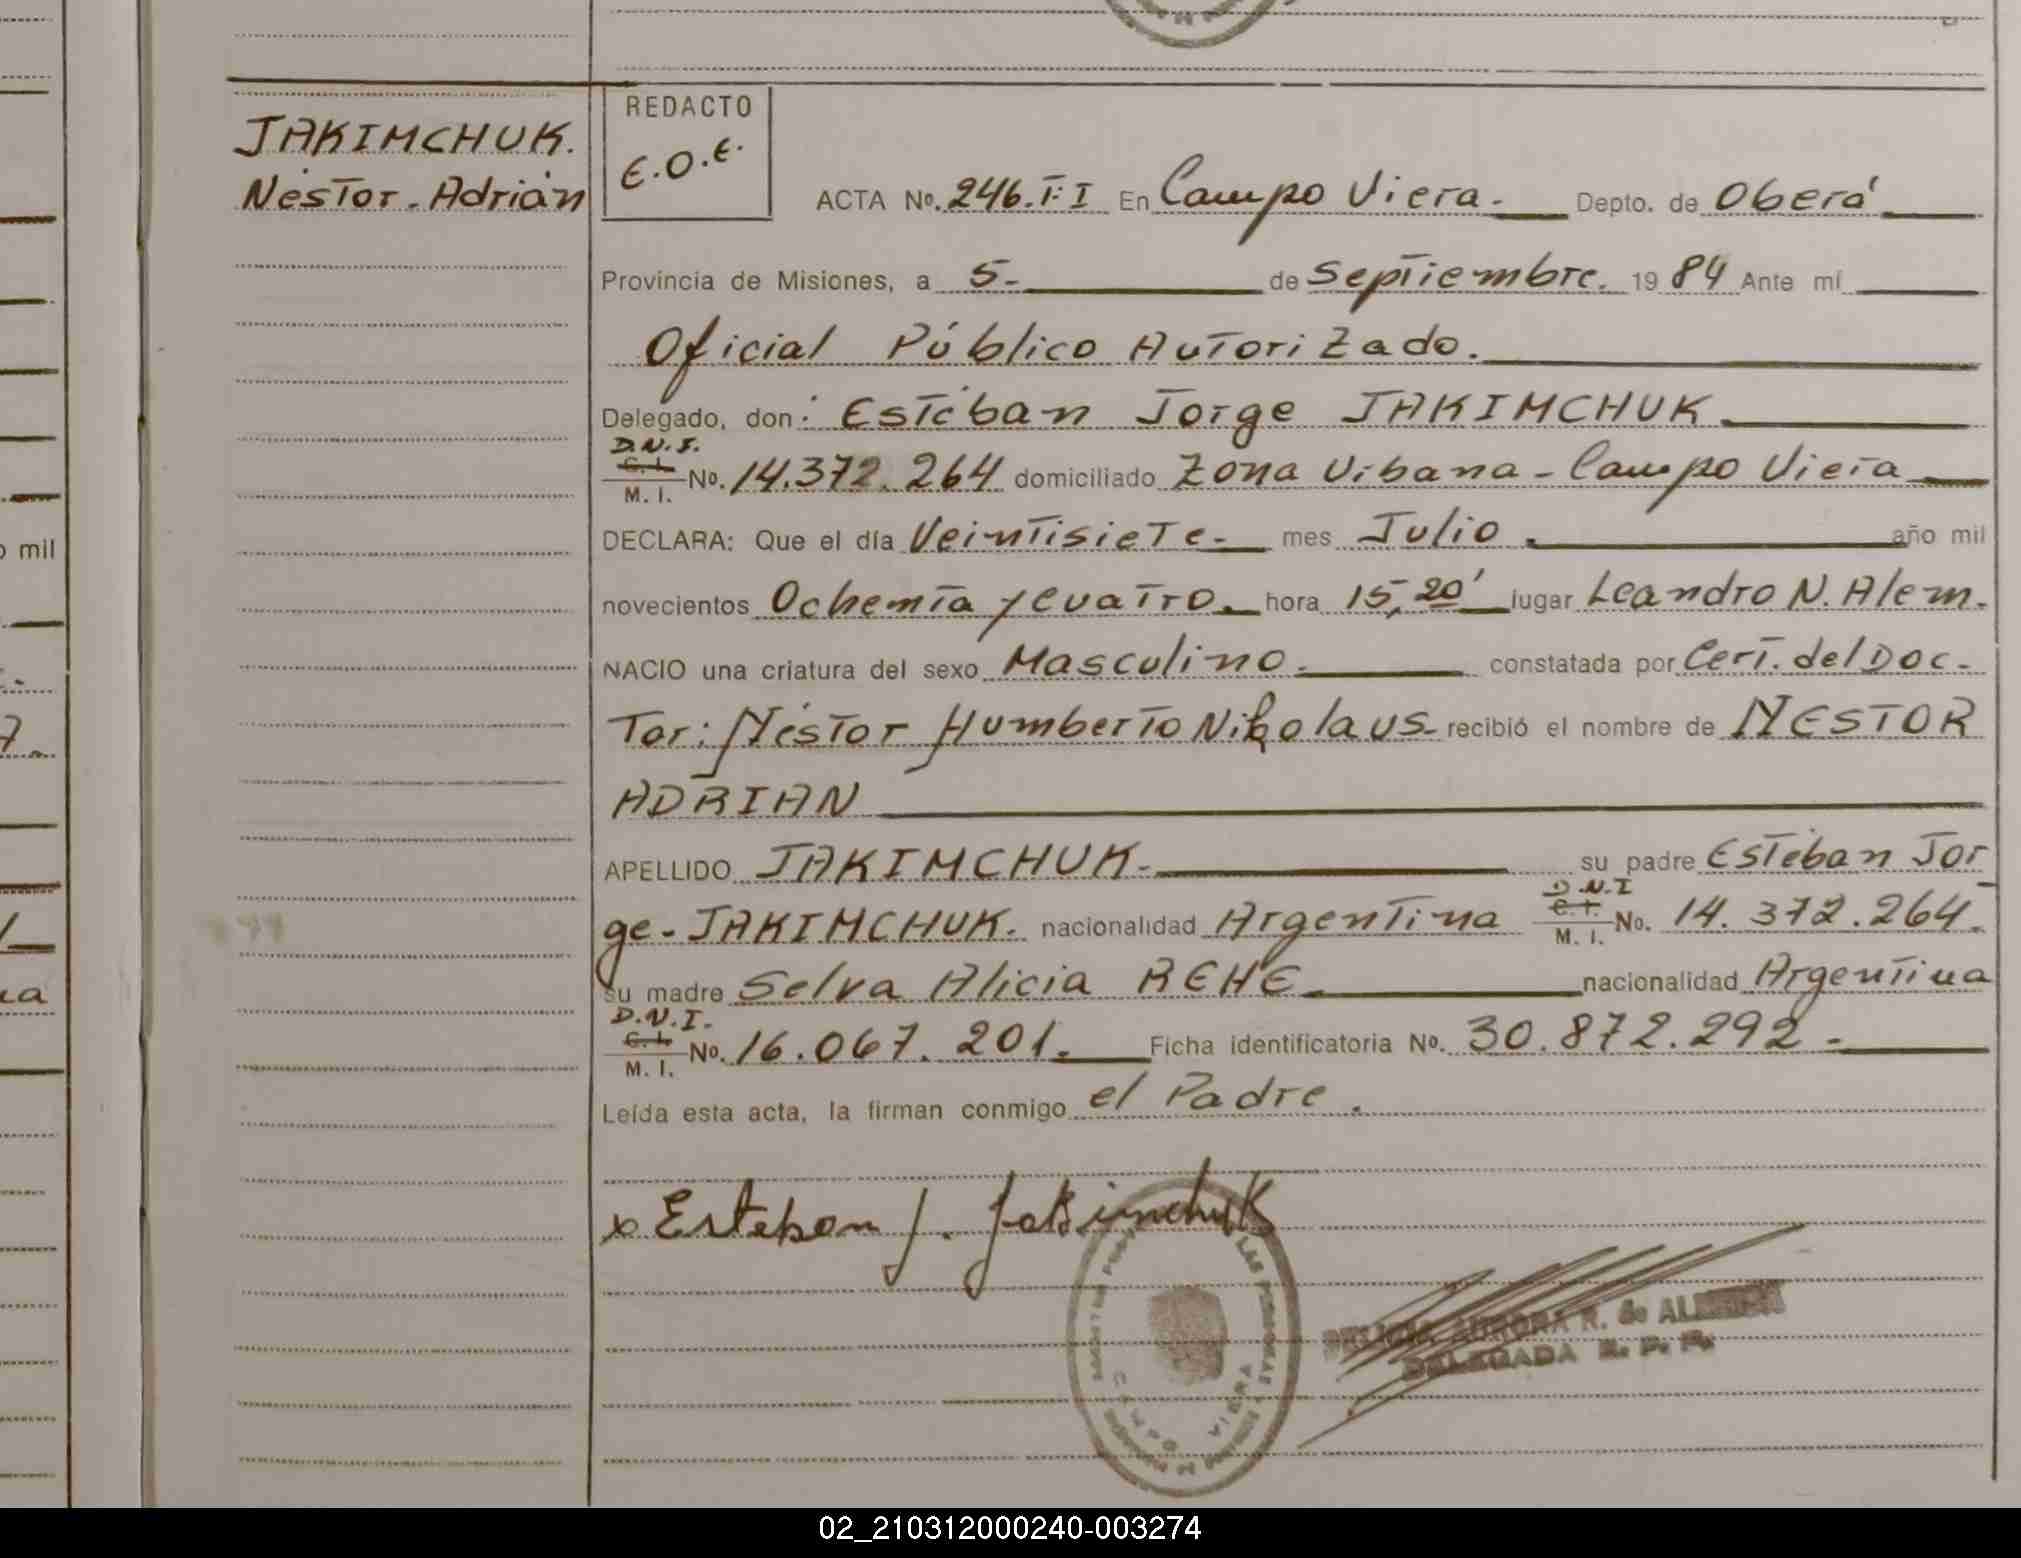 JAKIMCHUK.
Néstor. Adrián
REDACTO
E.O.E.
ACTA No. 246. T:I En Campo Viera. Depto. de Oberá
Provincia de Misiones, a 5- de Septiembre. 1984 Ante mí
Oficial Público Autorizado.
Delegado, don: Estéban Jorge JAKIMCHUK
D.N.I.
C.I. M. I. No. 14.372.264 domiciliado Zona Urbana - Campo Viera
DECLARA: Que el día Veintisiete- mes Julio. año mil
novecientos Ochenta y cuatro. hora 15,20' lugar Leandro N. Alem.
NACIO una criatura del sexo Masculino. constatada por Cert. del Doc-
Tor: Néstor Humberto Nikolaus- recibió el nombre de NESTOR
ADRIAN
APELLIDO JAKIMCHUK.- su padre Estéban Jor
ge- JAKIMCHUK. nacionalidad Argentina D.N.I C.I. M. I. No. 14. 372.264-
su madre Selva Alicia REHE nacionalidad Argentina
D.N.I.
C.I. M. I. No. 16.067.201. Ficha identificatoria No. 30.872.292.-
Leída esta acta, la firman conmigo el Padre.
x Esteban J. Jakimchuk
LAS PERSONAS
CAMPO VIERA
AURORA R. de
DELEGADA R. P. P.
o mil
7.
na
02_210312000240-003274